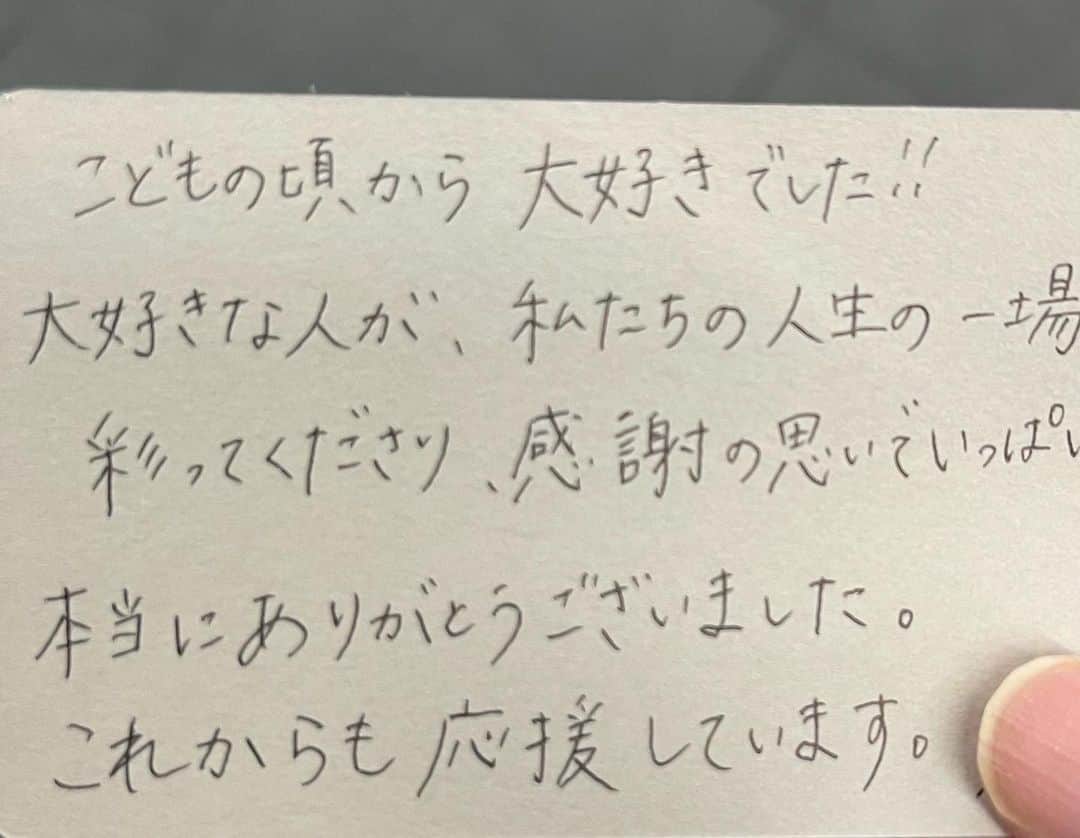 こどもの頃から 大好きでした!!
大好きな人が、私たちの人生の一場
彩ってくださり、感謝の思いでいっぱい
本当にありがとうございました。
これからも応援しています。